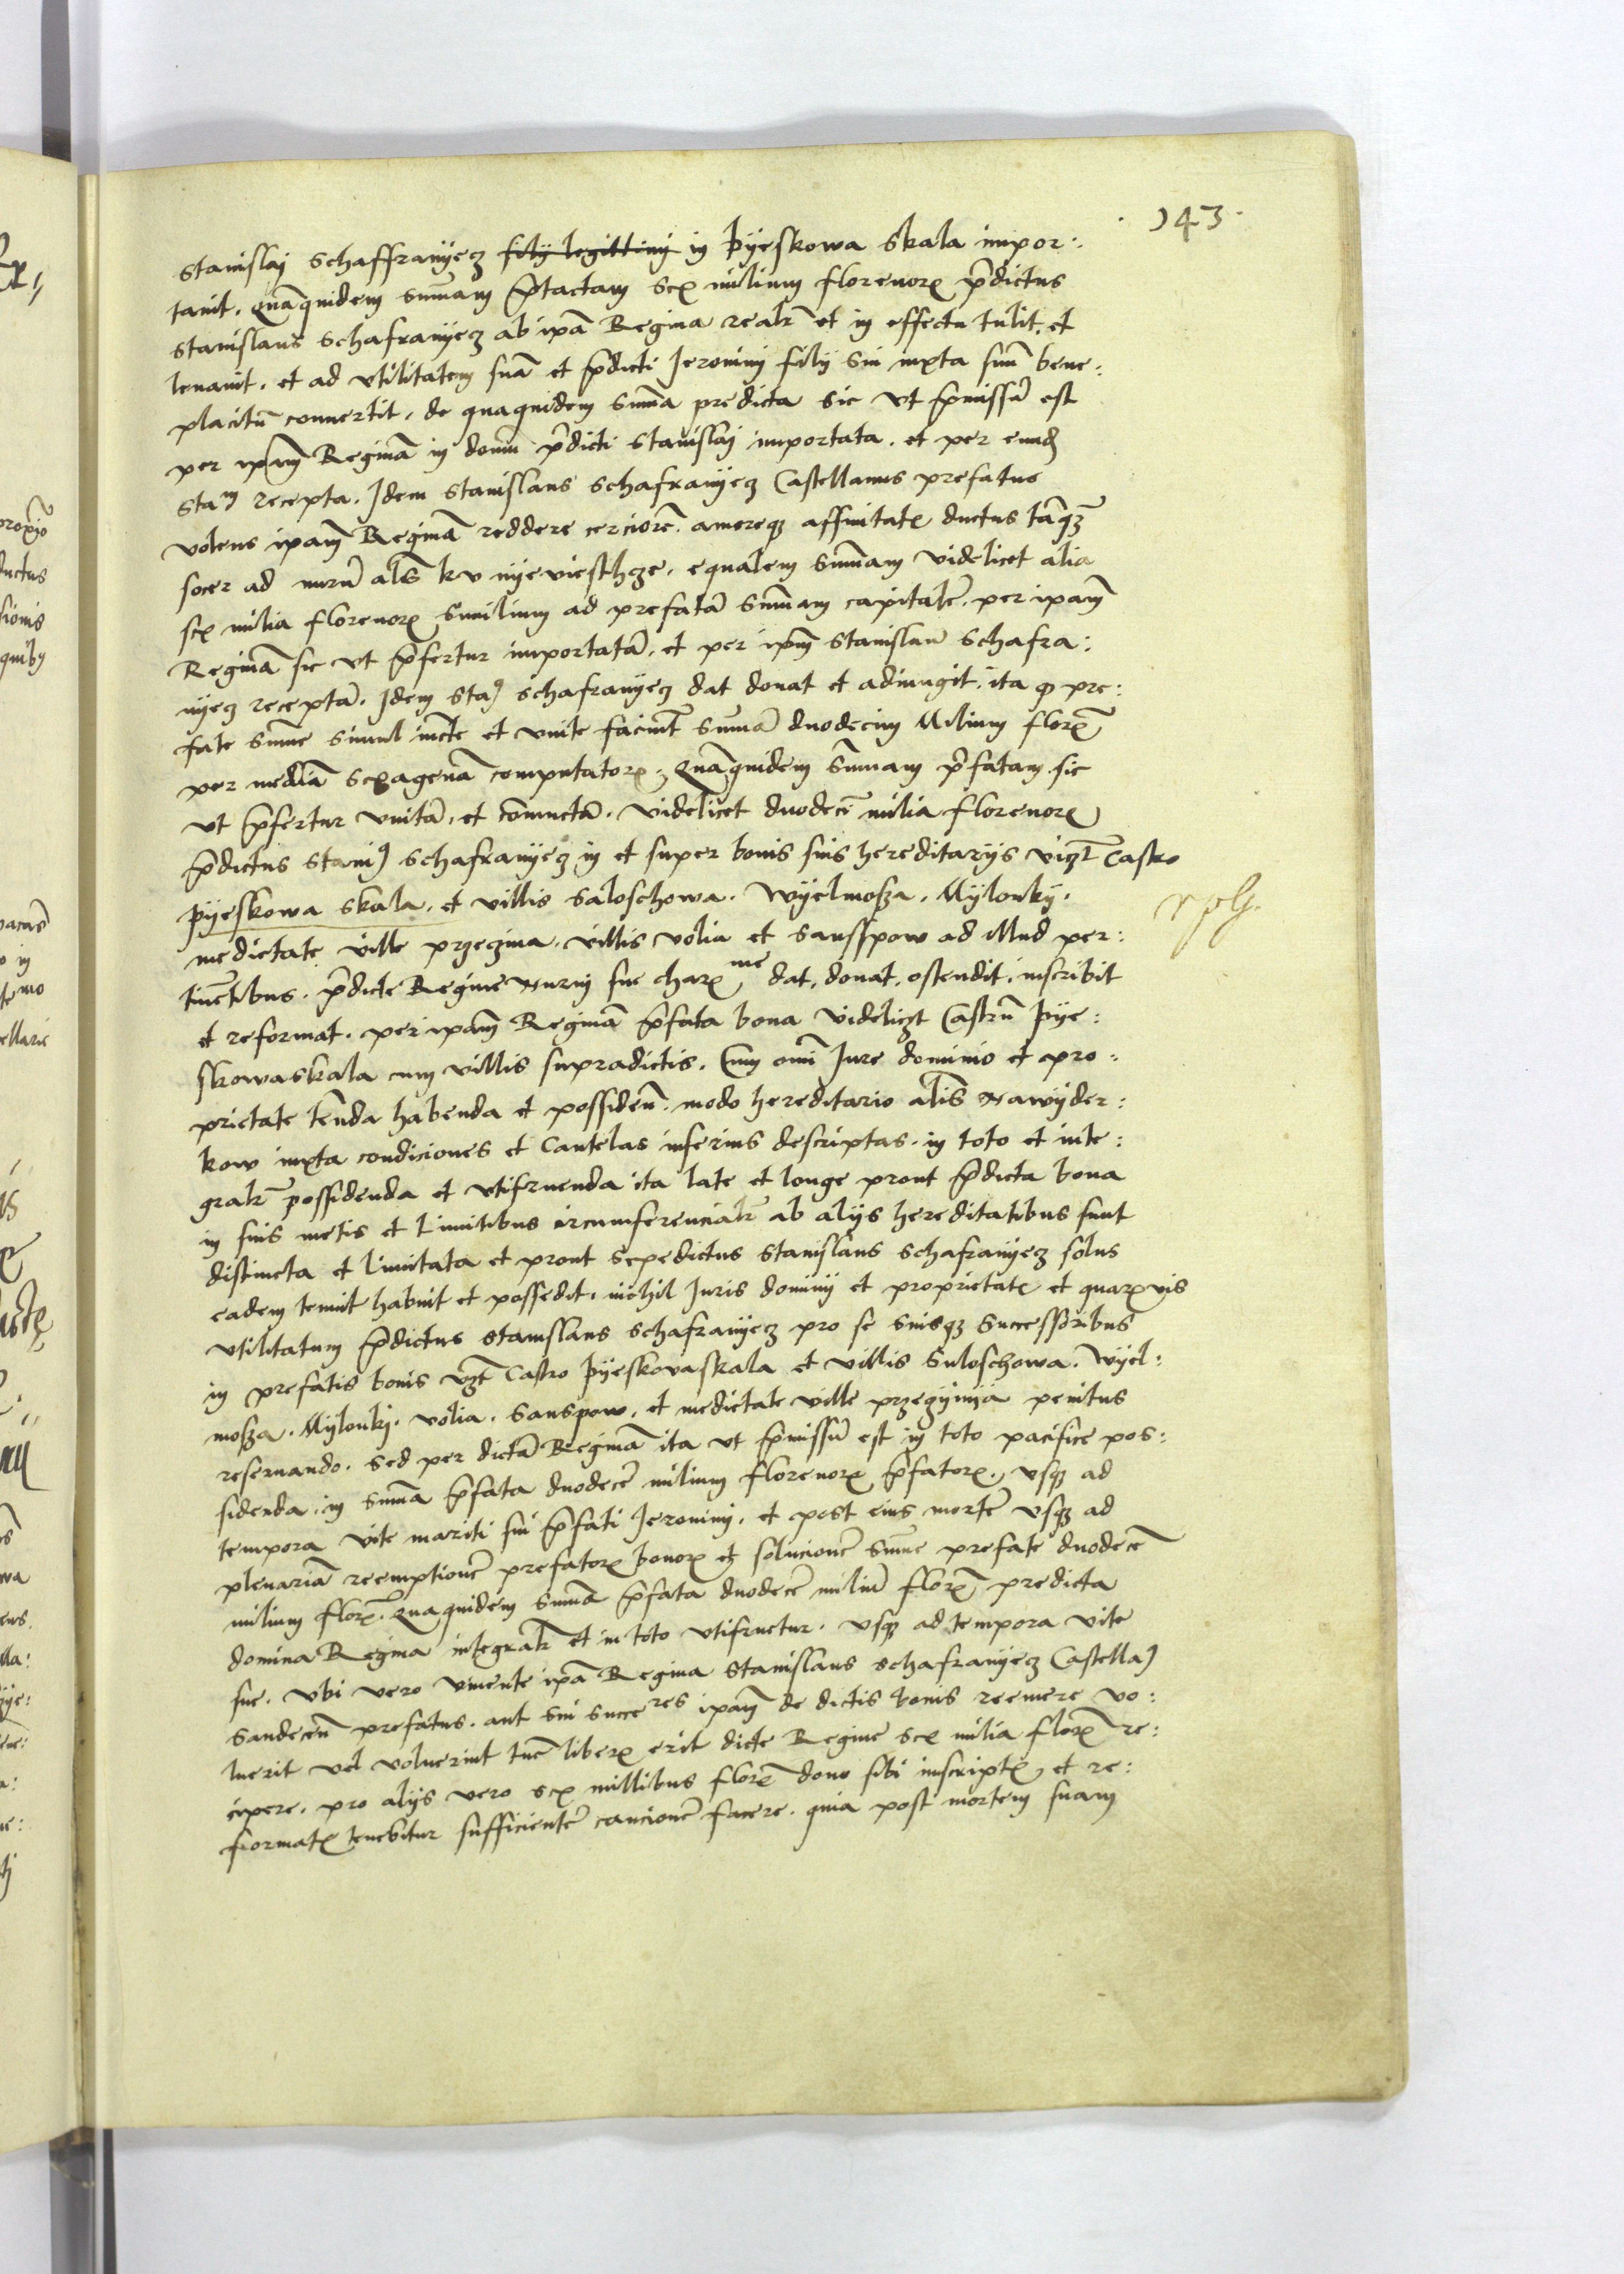 143
Stanislaj Schaffranyecz filij legittimj in Pyeskowa Skala impor:
tauit. Quāquidem summam p̄tactam sex milium florenorꝝ p̄dictus
Stanislaus Schafranyecz ab ipā Regina realr̄ et in effectu tulit, et
leuauit. et ad vtilitatem suā et p̄dicti Jeronimi filij sui iuxta suū bene:
placitū conuertit. de quaquidem summa predicta sic vt p̄missū est
per ipam̄ Reginā in domū p̄dicti Stanislaj importata. et per eund
Stam recepta. Idem Stanislaus Schafranyecz Castellanus prefatus
volens ipam̄ Reginā reddere cerciorē. amoreqꝫ affinitatꝭ ductus tāqꝫ
socer ad nurū als̄ ku nyeviesthcze. equalem summam videlicet alia
sex milia florenorꝝ similium ad prefatā summam capitalē. per ipam̄
Reginā sic vt p̄fertur importatā. et per ipm̄ Stanislaū Schafra:
nyecz receptā. Idem Staꝰ Schafranyecz dat donat et adiungit. ita ꝙ pre:
fate summe simul iuncte et vnite faciunt summā duodecim Milium florꝝ
per mediā sexagenā computatorꝝ. Quāquidem summam p̄fatam sic
vt p̄fertur vnitā. et coniunctā. videlicet duodecī milia florenorꝝ
p̄dictus Staniꝰ Schafranyecz in et super bonis suis hereditarijs vizt Castro
Pyeskowa Skala. et villis Saloschowa. Wyelmosza. Mylonky.
medietate ville przeginia. villis volia et Sansspow ad illud per:
tinētibus. p̄dicte Regine Nurui sue charꝭme dat, donat, ostendit, inscribit
et reformat. per ipam̄ Reginā p̄fata bona videlizt Castrū Pye:
skowaskala cum villis supradictis. Cum omī Jure dominio et pro:
prietate tenēda habenda et possidēn. modo hereditario alīs Nawyder:
kow iuxta condiciones et Cautelas inferius descriptas. in toto et inte:
gralr̄ possidenda et vtifruenda ita late et longe prout p̄dicta bona
in suis metis et Limitibus circumferencialr̄ ab alijs hereditatibus sunt
distincta et limitata et prout sepedictus Stanislaus Schafranyecz solus
eadem tenuit habuit et possedit. nichil Juris dominij et proprietatꝭ et quarꝝuis
vtilitatum p̄dictus Stanislaus Schafranyecz pro se suisqꝫ Successoribus
in prefatis bonis vzt Castro Pyeskovaskala et villis Suloschowa. Wyel:
mosza. Mylonkj. volia. Sanspow. et medietate ville przegynya penitus
reseruando. sed per dictā Reginā ita vt p̄missū est in toto pacifice pos:
sidenda. in summa p̄fata duodecē milium florenorꝝ p̄fatorꝝ. vsqꝫ ad
tempora vite mariti sui p̄fati Jeronimj. et post eius mortē vsqꝫ ad
plenariā reemptionē prefatorꝝ bonorꝝ et solucionē summe prefate duodecē
milium florꝝ. Quaquidem summa p̄fata duodecē miliū florꝝ predicta
domina Regina integralr̄ et in toto vtifruetur. vsqꝫ ad tempora vite
sue. vbi vero viuente ipā Regina Stanislaus Schafranyecz Castellaꝰ
Sandecen̄ prefatus. aut sui succeres ipam̄ de dictis bonis reemere vo:
luerit vel voluerint tūc liberꝝ erit dicte Regine sex milia florꝝ re:
cipere. pro alijs vero sex millibus florꝝ dono sibi inscriptꝭ et re:
formatꝭ tenebitur sufficientē caucionē facere. quia post mortem suam